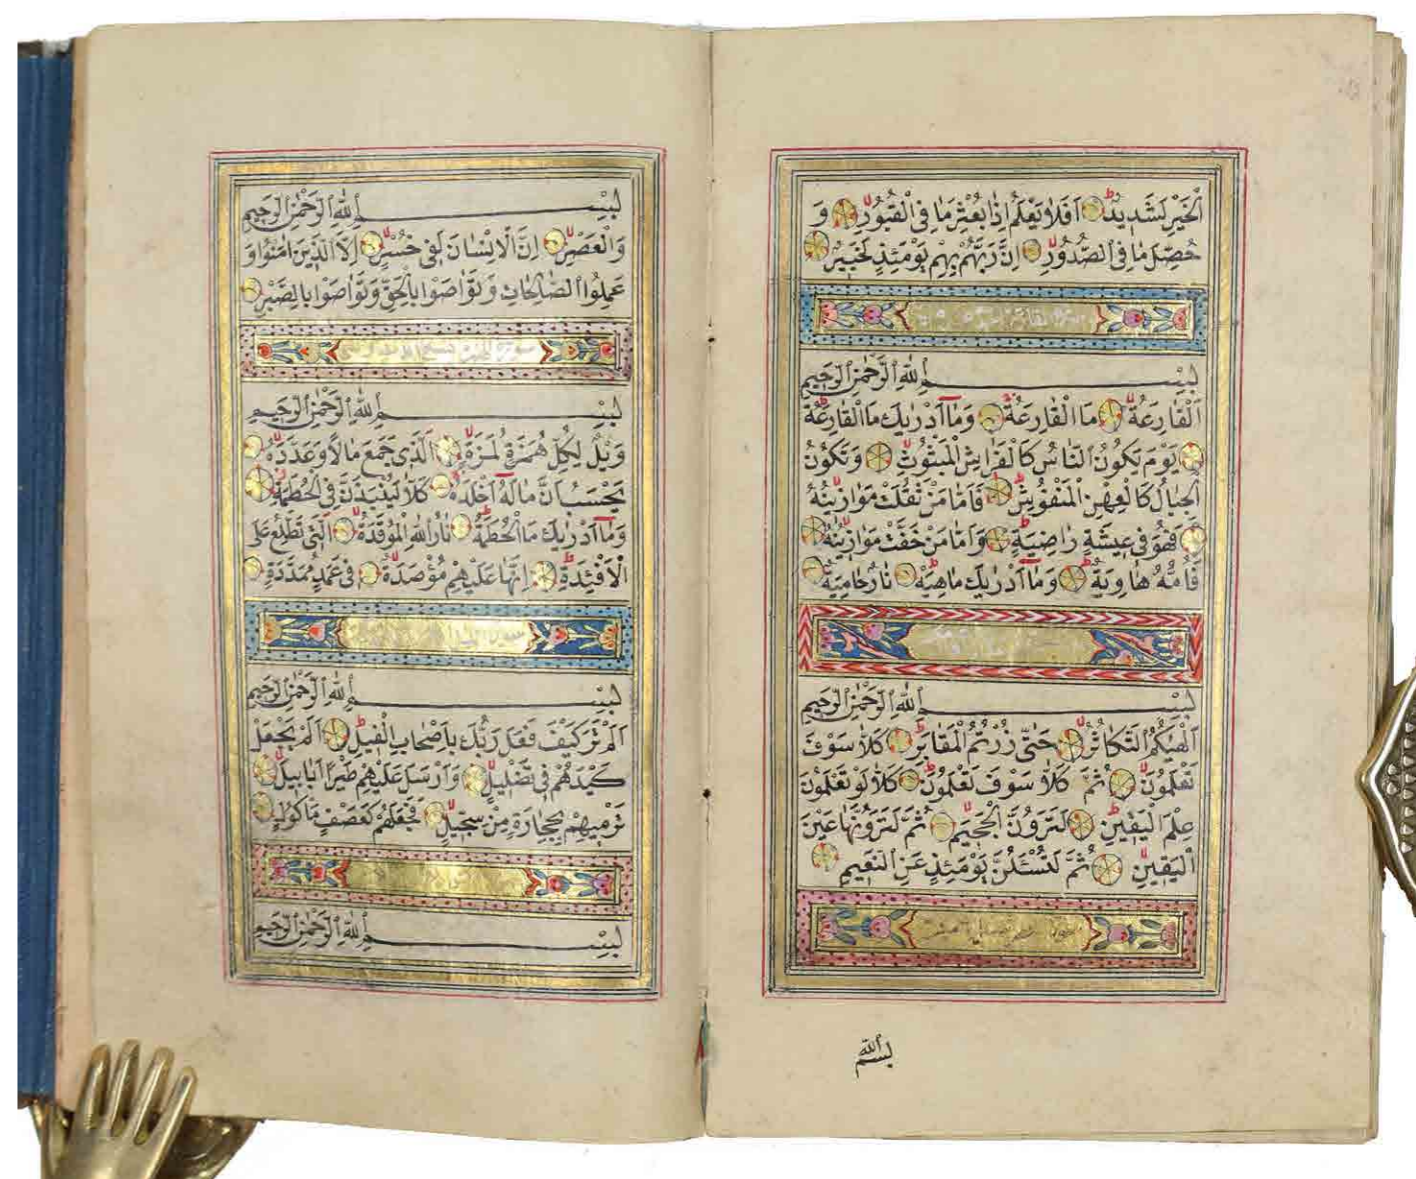 الْخَيْرِ لَشَدِيدٌ اَفَلَا يَعْلَمُ اِذَا بُعْثِرَ مَا فِى الْقُبُورِ وَ
حُصِّلَ مَا فِى الصُّدُورِ اِنَّ رَبَّهُمْ بِهِمْ يَوْمَئِذٍ لَخَبِيرٌ
بِسْمِ اللهِ الرَّحْمٰنِ الرَّحِيمِ
اَلْقَارِعَةُ مَا الْقَارِعَةُ وَمَا اَدْرٰيكَ مَا الْقَارِعَةُ
يَوْمَ يَكُونُ النَّاسُ كَالْفَرَاشِ الْمَبْثُوثِ وَتَكُونُ
الْجِبَالُ كَالْعِهْنِ الْمَنْفُوشِ فَاَمَّا مَنْ ثَقُلَتْ مَوَازِينُهُ
فَهُوَ فِى عِيشَةٍ رَاضِيَةٍ وَاَمَّا مَنْ خَفَّتْ مَوَازِينُهُ
فَاُمُّهُ هَاوِيَةٌ وَمَا اَدْرٰيكَ مَاهِيَهْ نَارٌ حَامِيَةٌ
بِسْمِ اللهِ الرَّحْمٰنِ الرَّحِيمِ
اَلْهٰيكُمُ التَّكَاثُرُ حَتّٰى زُرْتُمُ الْمَقَابِرَ كَلَّا سَوْفَ
تَعْلَمُونَ ثُمَّ كَلَّا سَوْفَ تَعْلَمُونَ كَلَّا لَوْ تَعْلَمُونَ
عِلْمَ الْيَقِينِ لَتَرَوُنَّ الْجَحِيمَ ثُمَّ لَتَرَوُنَّهَا عَيْنَ
الْيَقِينِ ثُمَّ لَتُسْئَلُنَّ يَوْمَئِذٍ عَنِ النَّعِيمِ
بسم الله
بِسْمِ اللهِ الرَّحْمٰنِ الرَّحِيمِ
وَالْعَصْرِ اِنَّ الْاِنْسَانَ لَفِى خُسْرٍ اِلَّا الَّذِينَ اٰمَنُوا وَ
عَمِلُوا الصَّالِحَاتِ وَتَوَاصَوْا بِالْحَقِّ وَتَوَاصَوْا بِالصَّبْرِ
بِسْمِ اللهِ الرَّحْمٰنِ الرَّحِيمِ
وَيْلٌ لِكُلِّ هُمَزَةٍ لُمَزَةٍ اَلَّذِى جَمَعَ مَالًا وَعَدَّدَهُ
يَحْسَبُ اَنَّ مَالَهُ اَخْلَدَهُ كَلَّا لَيُنْبَذَنَّ فِى الْحُطَمَةِ
وَمَا اَدْرٰيكَ مَا الْحُطَمَةُ نَارُ اللهِ الْمُوقَدَةُ اَلَّتِى تَطَّلِعُ عَلَى
الْاَفْئِدَةِ اِنَّهَا عَلَيْهِمْ مُؤْصَدَةٌ فِى عَمَدٍ مُمَدَّدَةٍ
بِسْمِ اللهِ الرَّحْمٰنِ الرَّحِيمِ
اَلَمْ تَرَ كَيْفَ فَعَلَ رَبُّكَ بِاَصْحَابِ الْفِيلِ اَلَمْ يَجْعَلْ
كَيْدَهُمْ فِى تَضْلِيلٍ وَاَرْسَلَ عَلَيْهِمْ طَيْرًا اَبَابِيلَ
تَرْمِيهِمْ بِحِجَارَةٍ مِنْ سِجِّيلٍ فَجَعَلَهُمْ كَعَصْفٍ مَأْكُولٍ
بِسْمِ اللهِ الرَّحْمٰنِ الرَّحِيمِ